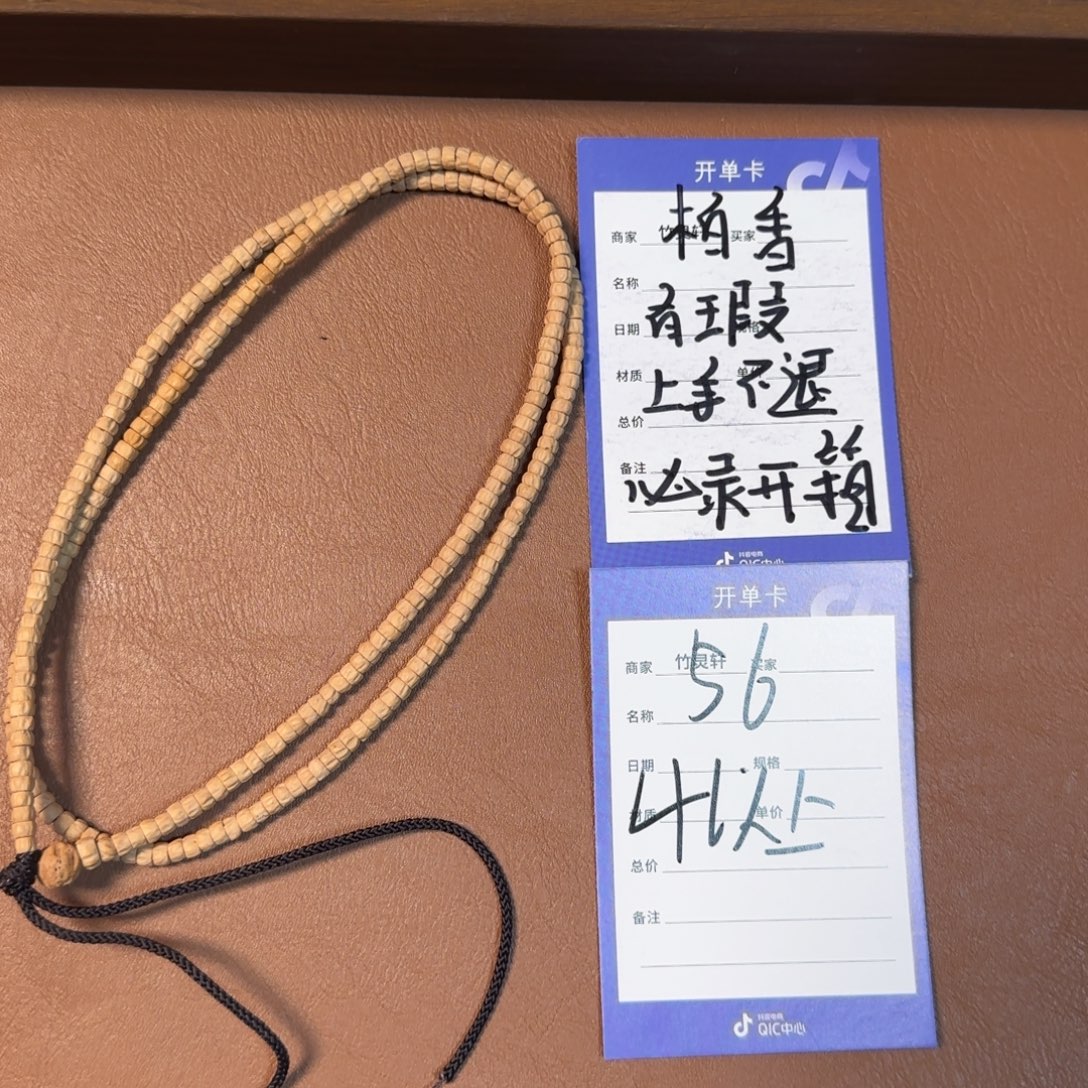 开单卡
柏香
商家 竹灵轩 买家
名称
有王瑕
日期 规格
上手不退
材质 单价
总价
必录开箱
备注
抖音电商
QIC中心
开单卡
56
商家 竹灵轩 买家
名称
日期 规格
材质 单价
总价
备注
抖音电商
QIC中心